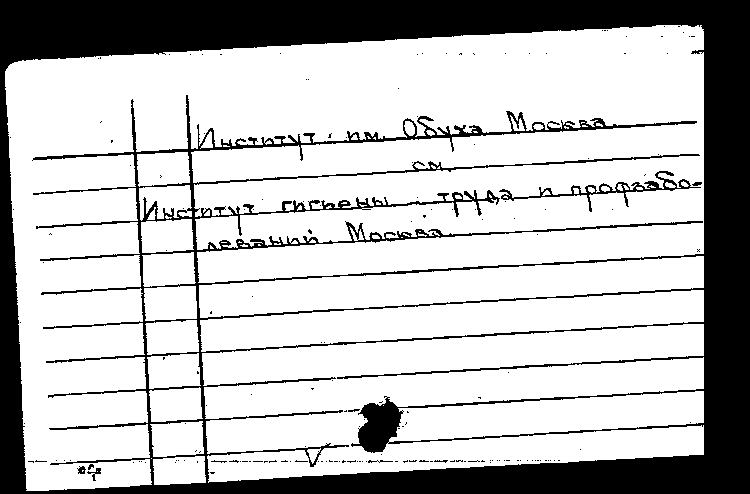 Институт им. Обуха Москва.
см.
Институт гигиены труда и профзабо-
леваний. Москва.